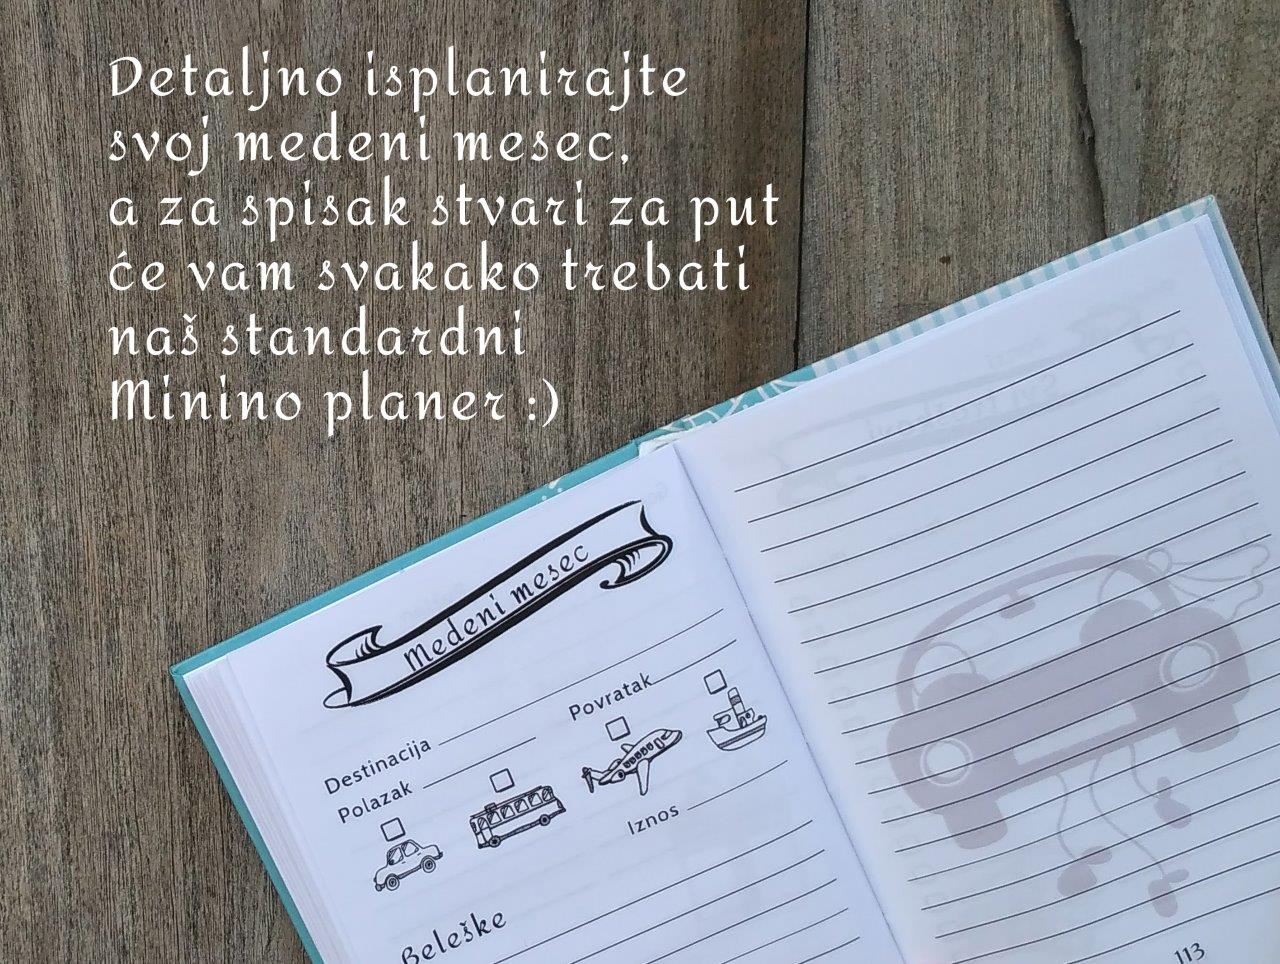 Detaljno isplanirajte
svoj medeni mesec,
a za spisak stvari za put
će vam svakako trebati
naš standardni
Minino planer :)
Medeni mesec
Destinacija
Polazak
Povratak
Iznos
Beleške
113